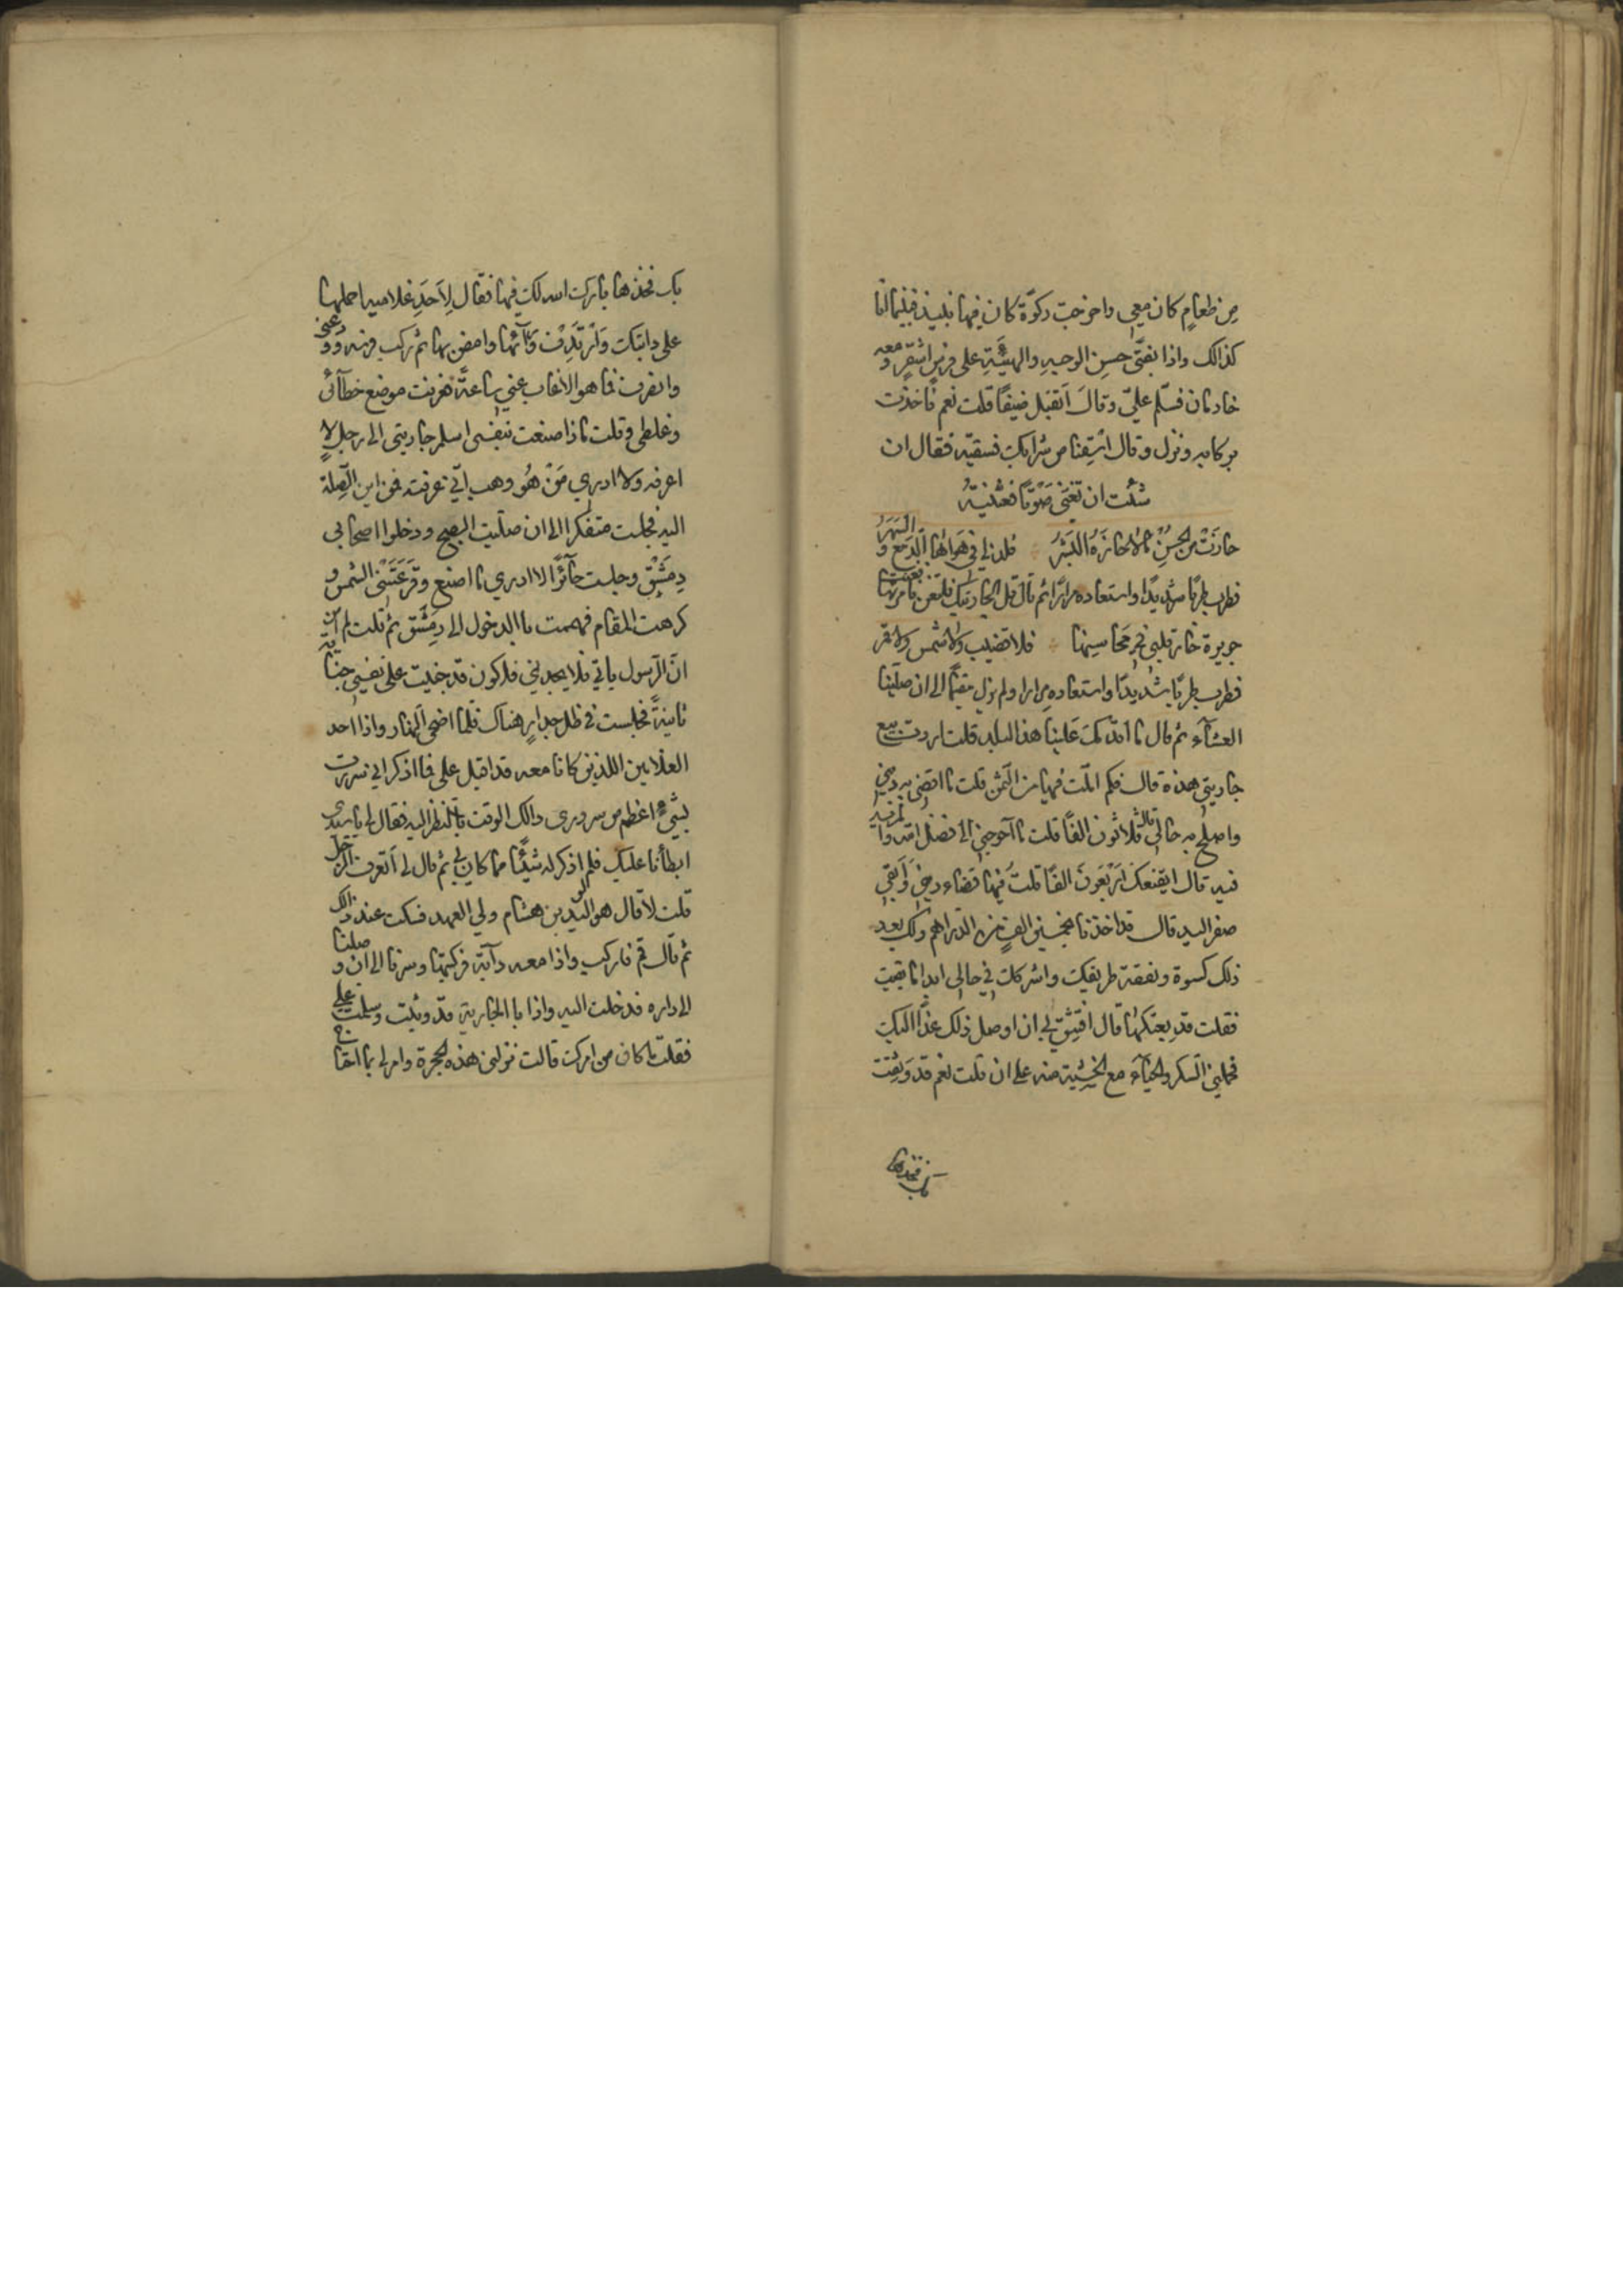 من طعام كان معي واخرجت ركوة كان فيها نبيذ فبينما انا
كذالك واذا بفتى حسن الوجه والهيئة على فرس اشقر ومعه
خادمان فسلم علي وقال اتقبل ضيفا قلت نعم فاخذت
بركابه ونزل وقال اسقنا من شرابك فسقيته فقال ان
شئت ان تغني صوتا فغنيته
حازت من الحسن مالا حازه البشر فلذ لي في هواها الدمع والسهر
فطرب طربا شديدا واستعاده مرارا ثم قال قل لجاريتك فلتغن فامرتها فغنت
حورية حار قلبي في محاسنها فلا قضيب ولا شمس ولا قمر
فطرب طربا شديدا واستعاده مرارا ولم يزل مقيما الى ان صلينا
العشاء ثم قال ما اقدمك علينا هذا البلد قلت اردت بيع
جاريتي هذه قال فكم املت فيها من الثمن قلت ما اقضي به ديني
واصلح به حالي قال ثلاثون الفا قلت ما احوجني الى فضل الله والمزيد
فيه قال ايقنعك اربعون الفا قلت فيها قضاء ديني وابقى
صفر اليد قال قد اخذناها بخمسين الف من الدراهم ولك بعد
ذلك كسوة ونفقة طريقك واشركك في حالي ابدا ما بقيت
فقلت قد بعتكها قال افتثق لي ان اوصل ذلك غدا اليك
فحملني السكر والحياء مع الخشية منه على ان قلت نعم قد وثقت
بك فخذها
بك فخذها بارك الله لك فيها فقال لاحد غلاميه احملها
على دابتك وارتدف وراءها وامض بها ثم ركب فرسه وودعني
وانصرف فما هو الا غاب عني ساعة فعرفت موضع خطائي
وغلطي وقلت ماذا صنعت بنفسي اسلم جاريتي الى رجل لا
اعرفه ولا ادري من هو وهب اني عرفته فمن اين الصلة
اليه فجلست متفكرا الى ان صليت الصبح ودخلوا اصحابي
دمشق وجلست حائرا لا ادري ما اصنع وقرعتني الشمس و
كرهت المقام فهممت بالدخول الى دمشق ثم قلت لم آمن
ان الرسول ياتي فلا يجدني فاكون قد جنيت على نفسي جناية
ثانية فجلست في ظل جدار هناك فلما اضحى النهار واذا احد
الغلامين اللذين كانا معه قد اقبل علي فما اذكر اني سررت
بشيء اعظم من سروري ذالك الوقت بالنظر اليه فقال لي يا سيدي
ابطأنا عليك فلم اذكر له شيئا مما كان بي ثم قال لي اتعرف الرجل
قلت لا قال هو الوليد بن هشام ولي العهد فسكت عند ذالك
ثم قال قم فاركب واذا معه دابة فركبتها وسرنا الى ان وصلنا
الى داره فدخلت اليه واذا بالجارية قد وثبت وسلمت علي
فقلت ما كان من امرك قالت نزلني هذه الحجرة وامر لي بما احتاج